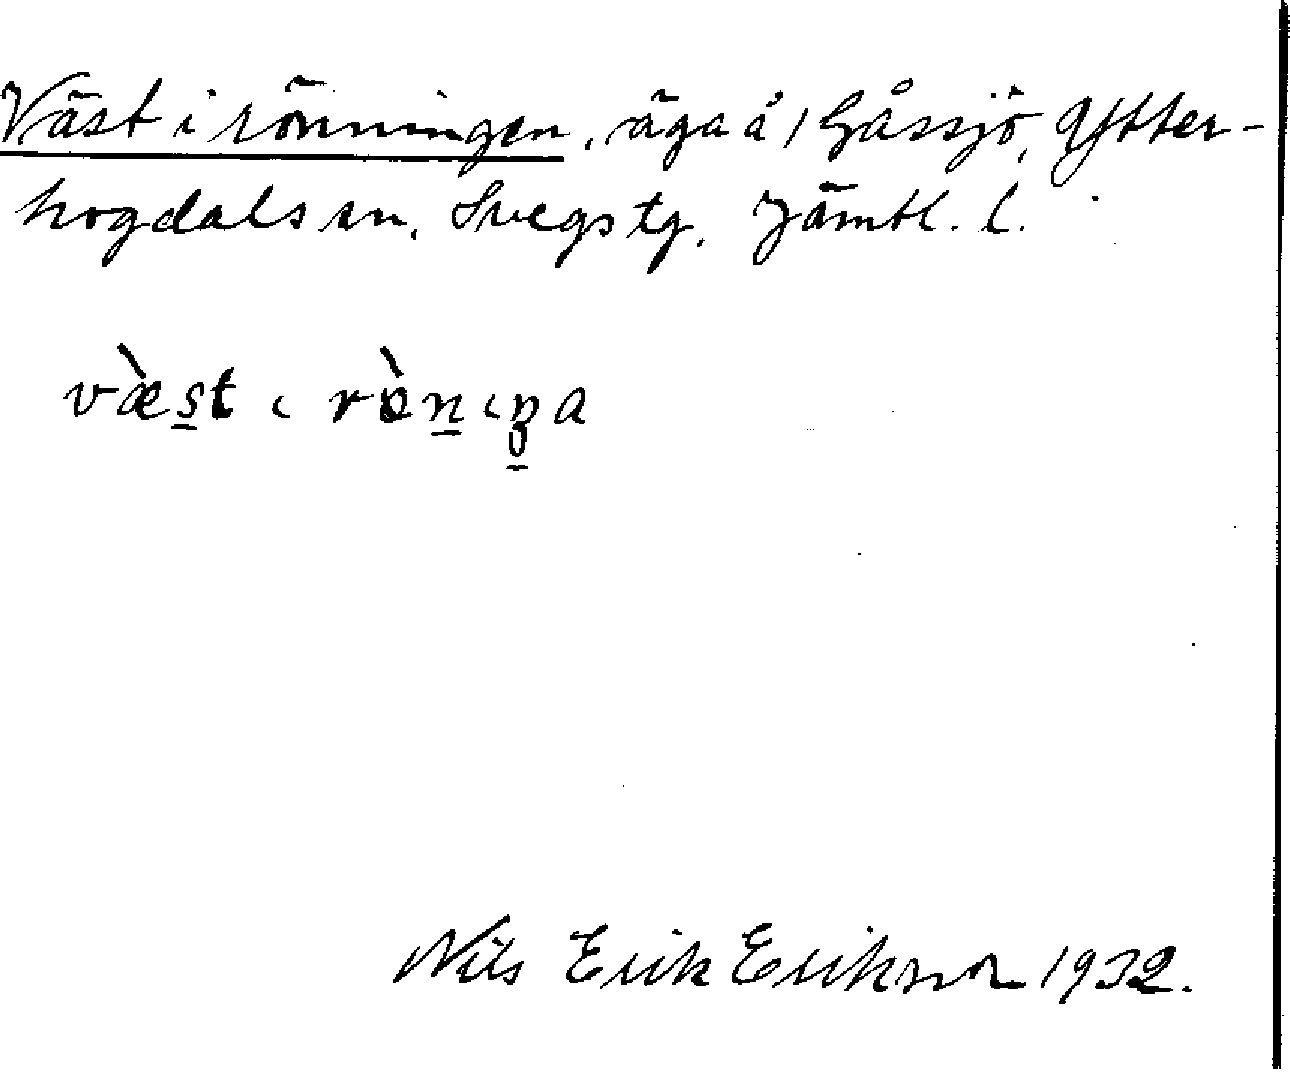 Väst i rönningen, äga å 1 Gåssjö, Ytter-
hogdals sn, Svegs tg. Jämtl. l.
væ̀s̲t ɩ rɵ̀n̲ɩŋ̲a
Nils Erik Erikson 1932.